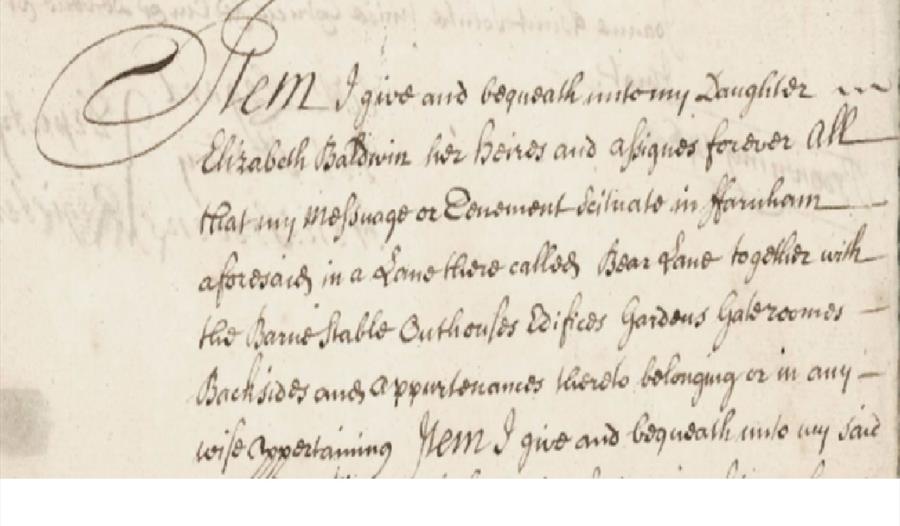 Item I give and bequeath unto my Daughter
Elizabeth Baldwin her heires and assignes forever All
that my Messuage or Tenement scituate in ffarnham
aforesaid in a Lane there called Bear Lane together with
the Barne Stable Outhouses Edifices Gardens Gateroomes
Backsides and Appurtenances thereto belonging or in any
wise appertaining Item I give and bequeath unto my said